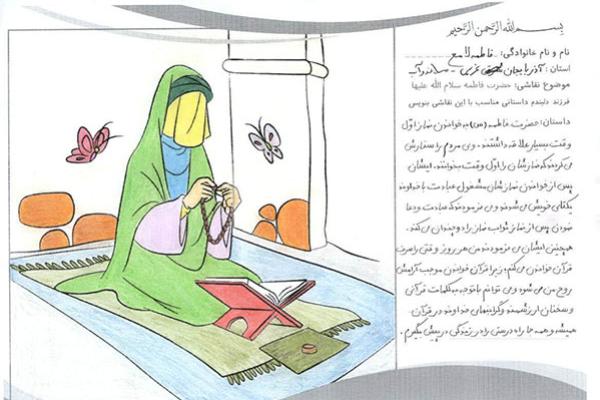 بسم الله الرحمن الرحیم
نام و نام خانوادگی: فاطمه لامع
استان: آذربایجان غربی - میاندوآب
موضوع نقاشی: حضرت فاطمه سلام الله علیها
فرزند دلبندم داستانی مناسب با این نقاشی بنویس
داستان: حضرت فاطمه (س) به خواندن نماز اوّل
وقت بسیار علاقه داشتند. وی مردم را سفارش
می کردند که نمازشان را اوّل وقت بخوانند. ایشان
پس از خواندن نمازشان مشغول عبادت با خداوند
یکتای خویش می شدند و می فرمودند که عبادت و دعا
نمودن پس از نماز ثواب نماز را دوچندان می کند.
همچنین ایشان می فرمودند من هر روز وقتی را صرف
قرآن خواندن می کنم، زیرا قرآن خواندن موجب آرامش
روح من می شود و می توانم با توجه به کلمات قرآنی
و سخنان ارزشمند و گرانبهای خداوند در قرآن
همیشه و همه جا راه درستی را در زندگی در پیش بگیرم.